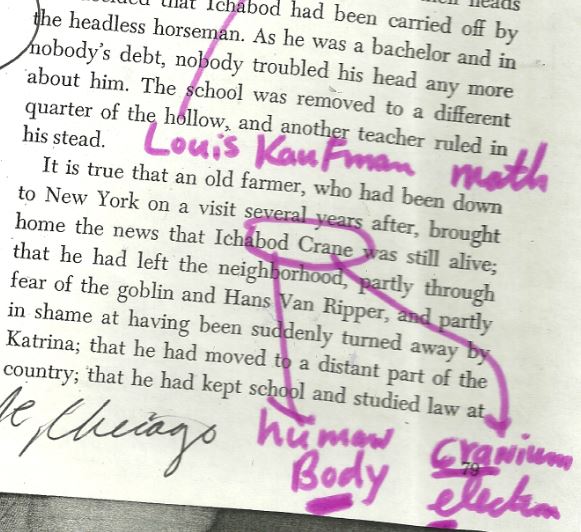 that Ichabod had been carried off by
the headless horseman. As he was a bachelor and in
nobody's debt, nobody troubled his head any more
about him. The school was removed to a different
quarter of the hollow, and another teacher ruled in
his stead.
Louis Kaufman math
It is true that an old farmer, who had been down
to New York on a visit several years after, brought
home the news that Ichabod Crane was still alive;
that he had left the neighborhood, partly through
fear of the goblin and Hans Van Ripper, and partly
in shame at having been suddenly turned away by
Katrina; that he had moved to a distant part of the
country; that he had kept school and studied law at
Chicago
human
Body
Cranium
79
election